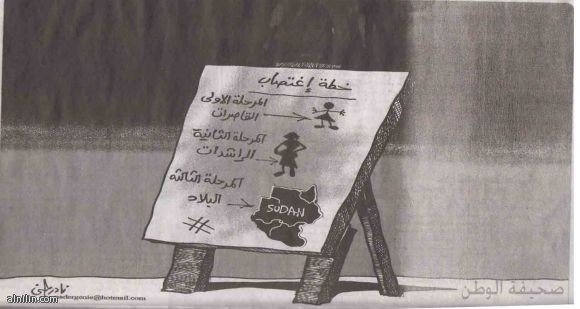 خطة إغتصاب
المرحلة الأولى
القاصرات
المرحلة الثانية
الراشدات
المرحلة الثالثة
البلاد
SUDAN
صحيفة الوطن
nadergenie@hotmail.com
alnilin.com